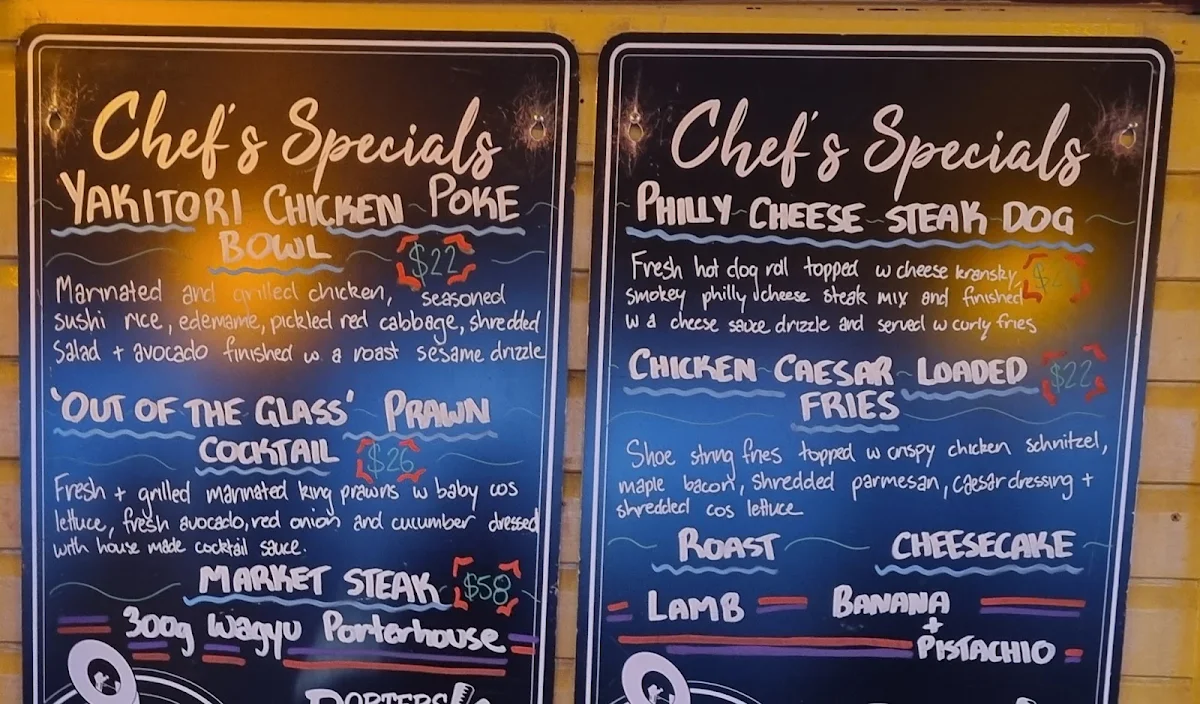 Chef's Specials
YAKITORI CHICKEN POKE
BOWL $22
Marinated and grilled chicken, seasoned
sushi rice, edemame, pickled red cabbage, shredded
salad + avocado finished w a roast sesame drizzle
'OUT OF THE GLASS' PRAWN
COCKTAIL $26
Fresh + grilled marinated king prawns w baby cos
lettuce, fresh avocado, red onion and cucumber dressed
with house made cocktail sauce.
MARKET STEAK $58
300g Wagyu Porterhouse
PORTERS
Chef's Specials
PHILLY CHEESE STEAK DOG
Fresh hot dog roll topped w cheese kransky,
smokey philly cheese steak mix and finished
w a cheese sauce drizzle and served w curly fries
CHICKEN CAESAR LOADED $22
FRIES
Shoe string fries topped w crispy chicken schnitzel,
maple bacon, shredded parmesan, caesar dressing +
shredded cos lettuce
ROAST
LAMB
CHEESECAKE
BANANA
+
PISTACHIO